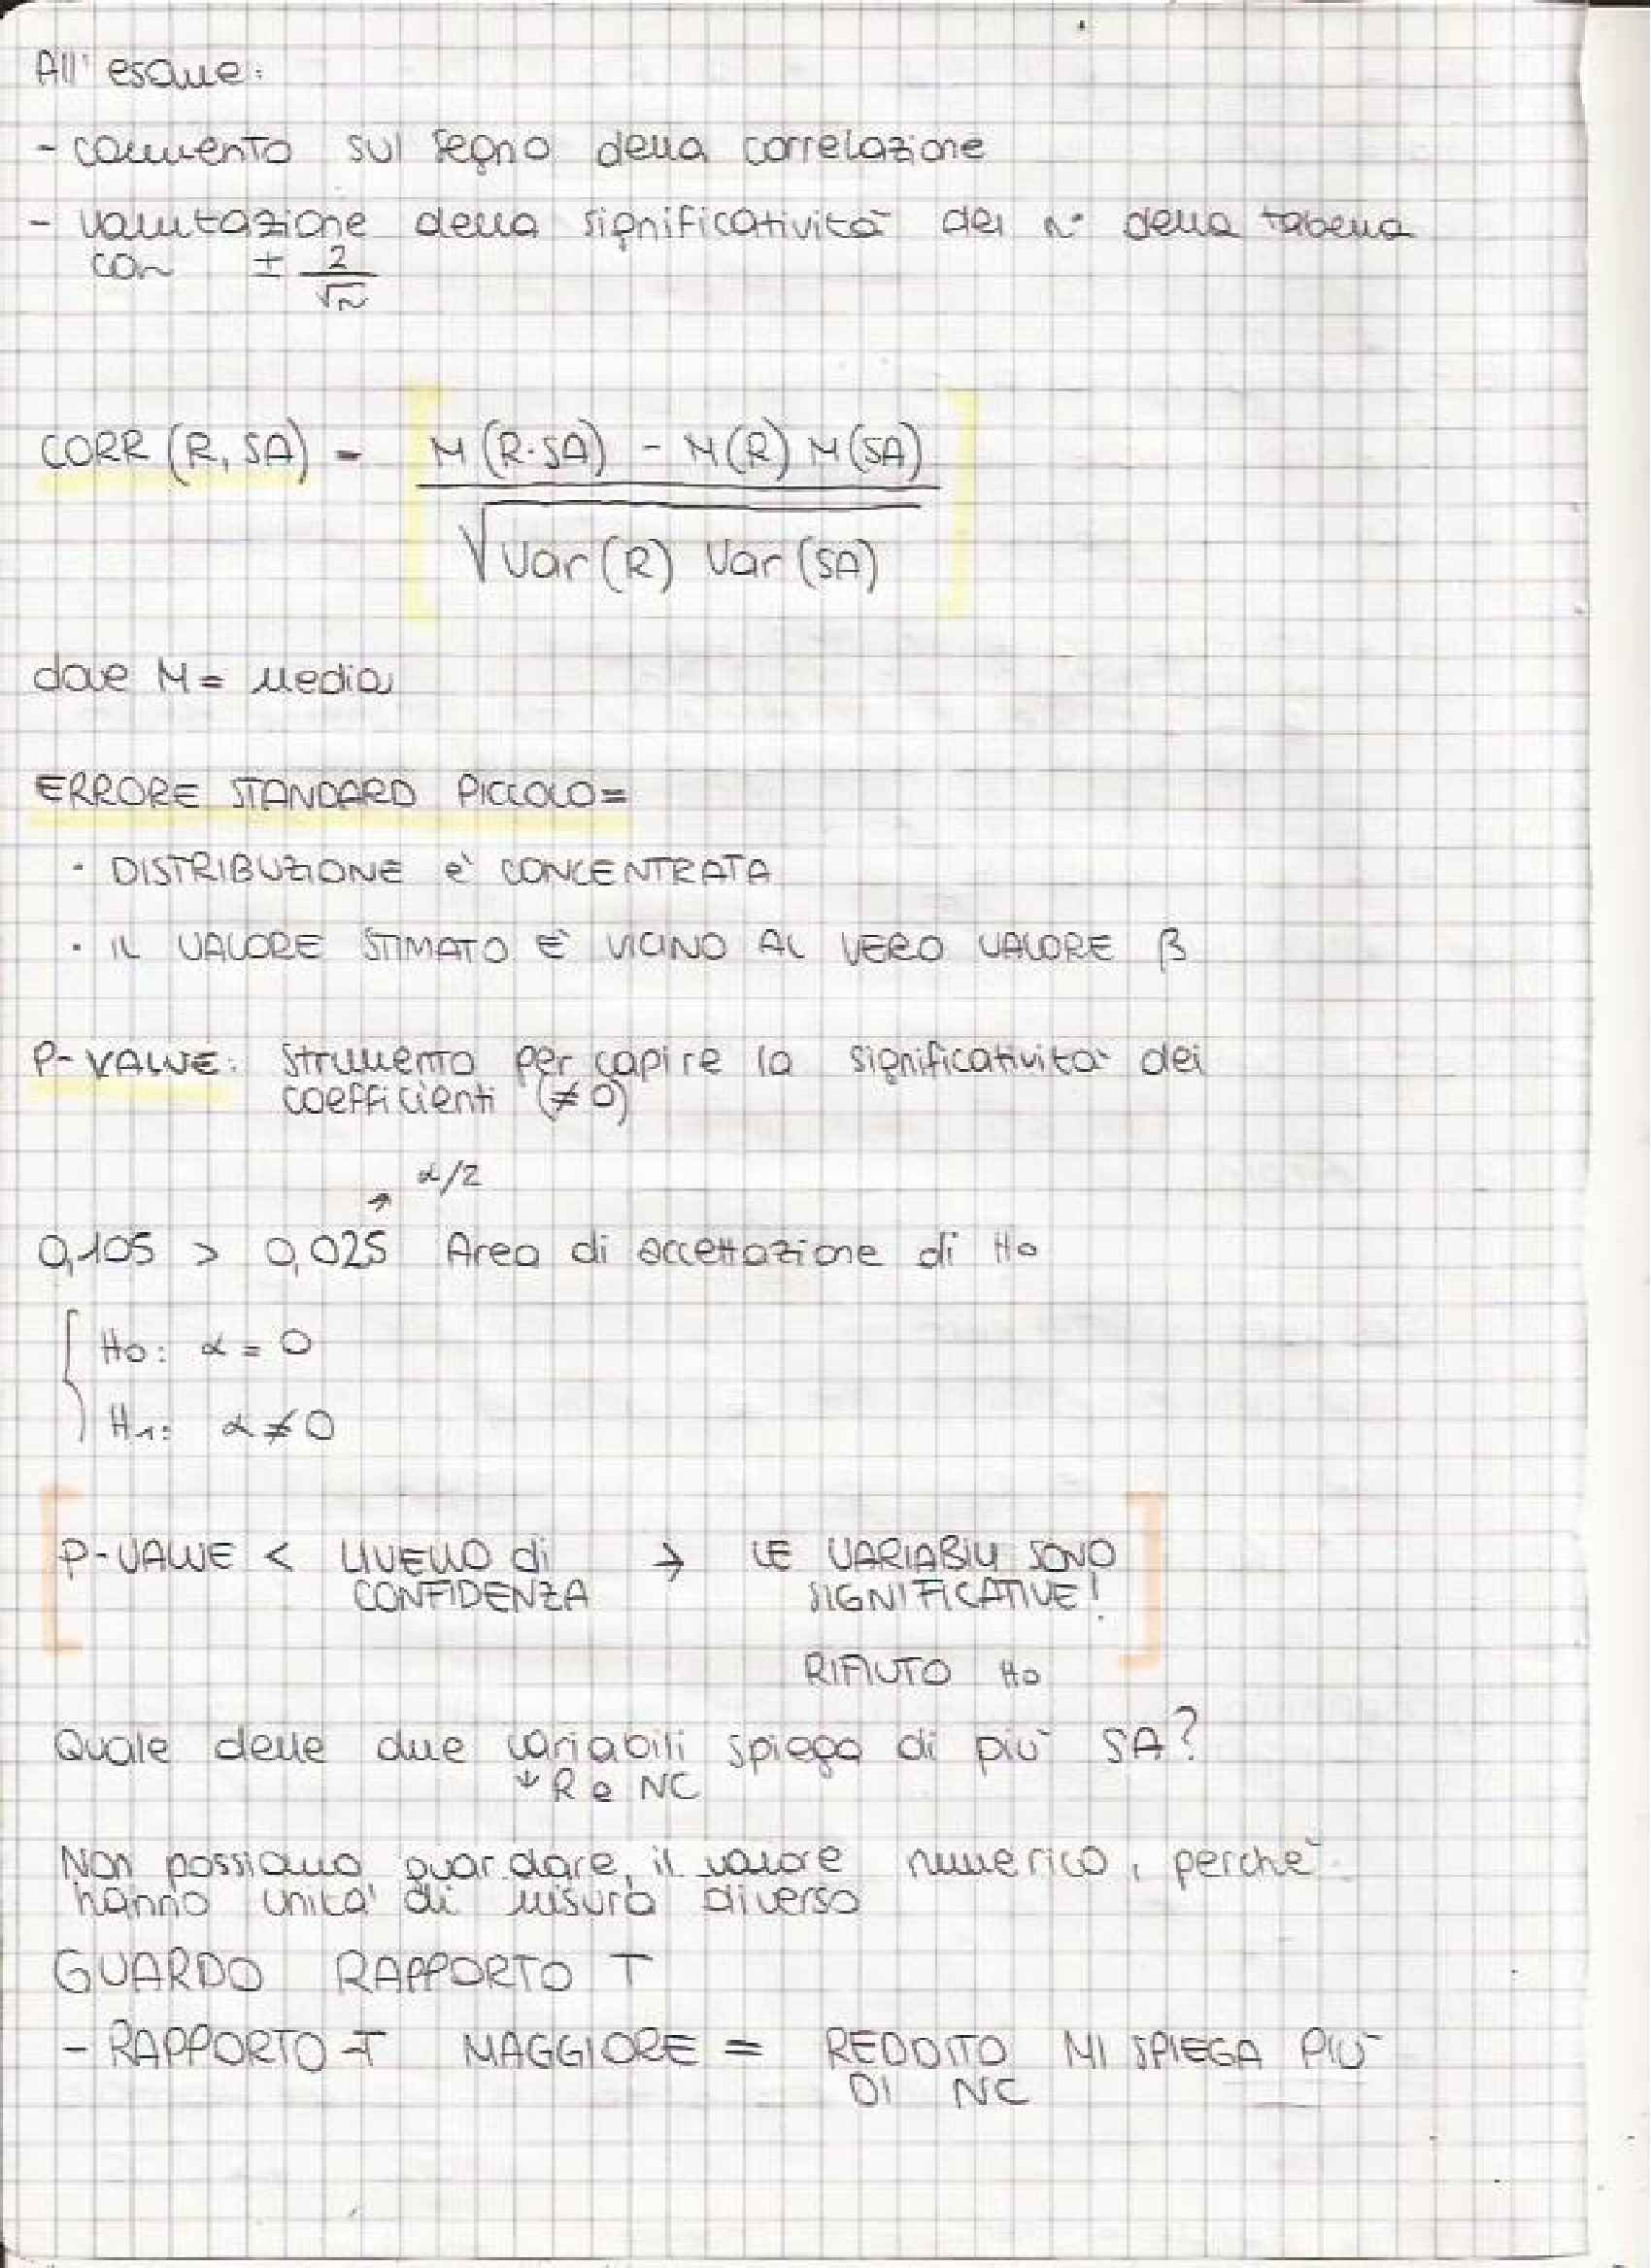 All' esame:
- commento sul segno della correlazione
- valutazione della significatività dei n° della tabella
con ± 2/√n
CORR (R, SA) = M (R·SA) - M(R) M(SA)
√Var(R) Var(SA)
dove M = Media
ERRORE STANDARD PICCOLO=
· DISTRIBUZIONE è CONCENTRATA
· IL VALORE STIMATO È VICINO AL VERO VALORE β
P-VALUE: strumento per capire la significatività dei
coefficienti (≠0)
α/2
0,105 > 0,025 Area di accettazione di H0
H0: α = 0
H1: α ≠ 0
P-VALUE < LIVELLO di → LE VARIABILI SONO
CONFIDENZA SIGNIFICATIVE!
RIFIUTO H0
Quale delle due variabili spiega di più SA?
↓ R e NC
Non possiamo guardare, il valore numerico, perché
hanno unità di misura diverso
GUARDO RAPPORTO T
- RAPPORTO-T MAGGIORE = REDDITO MI SPIEGA PIÙ
DI NC